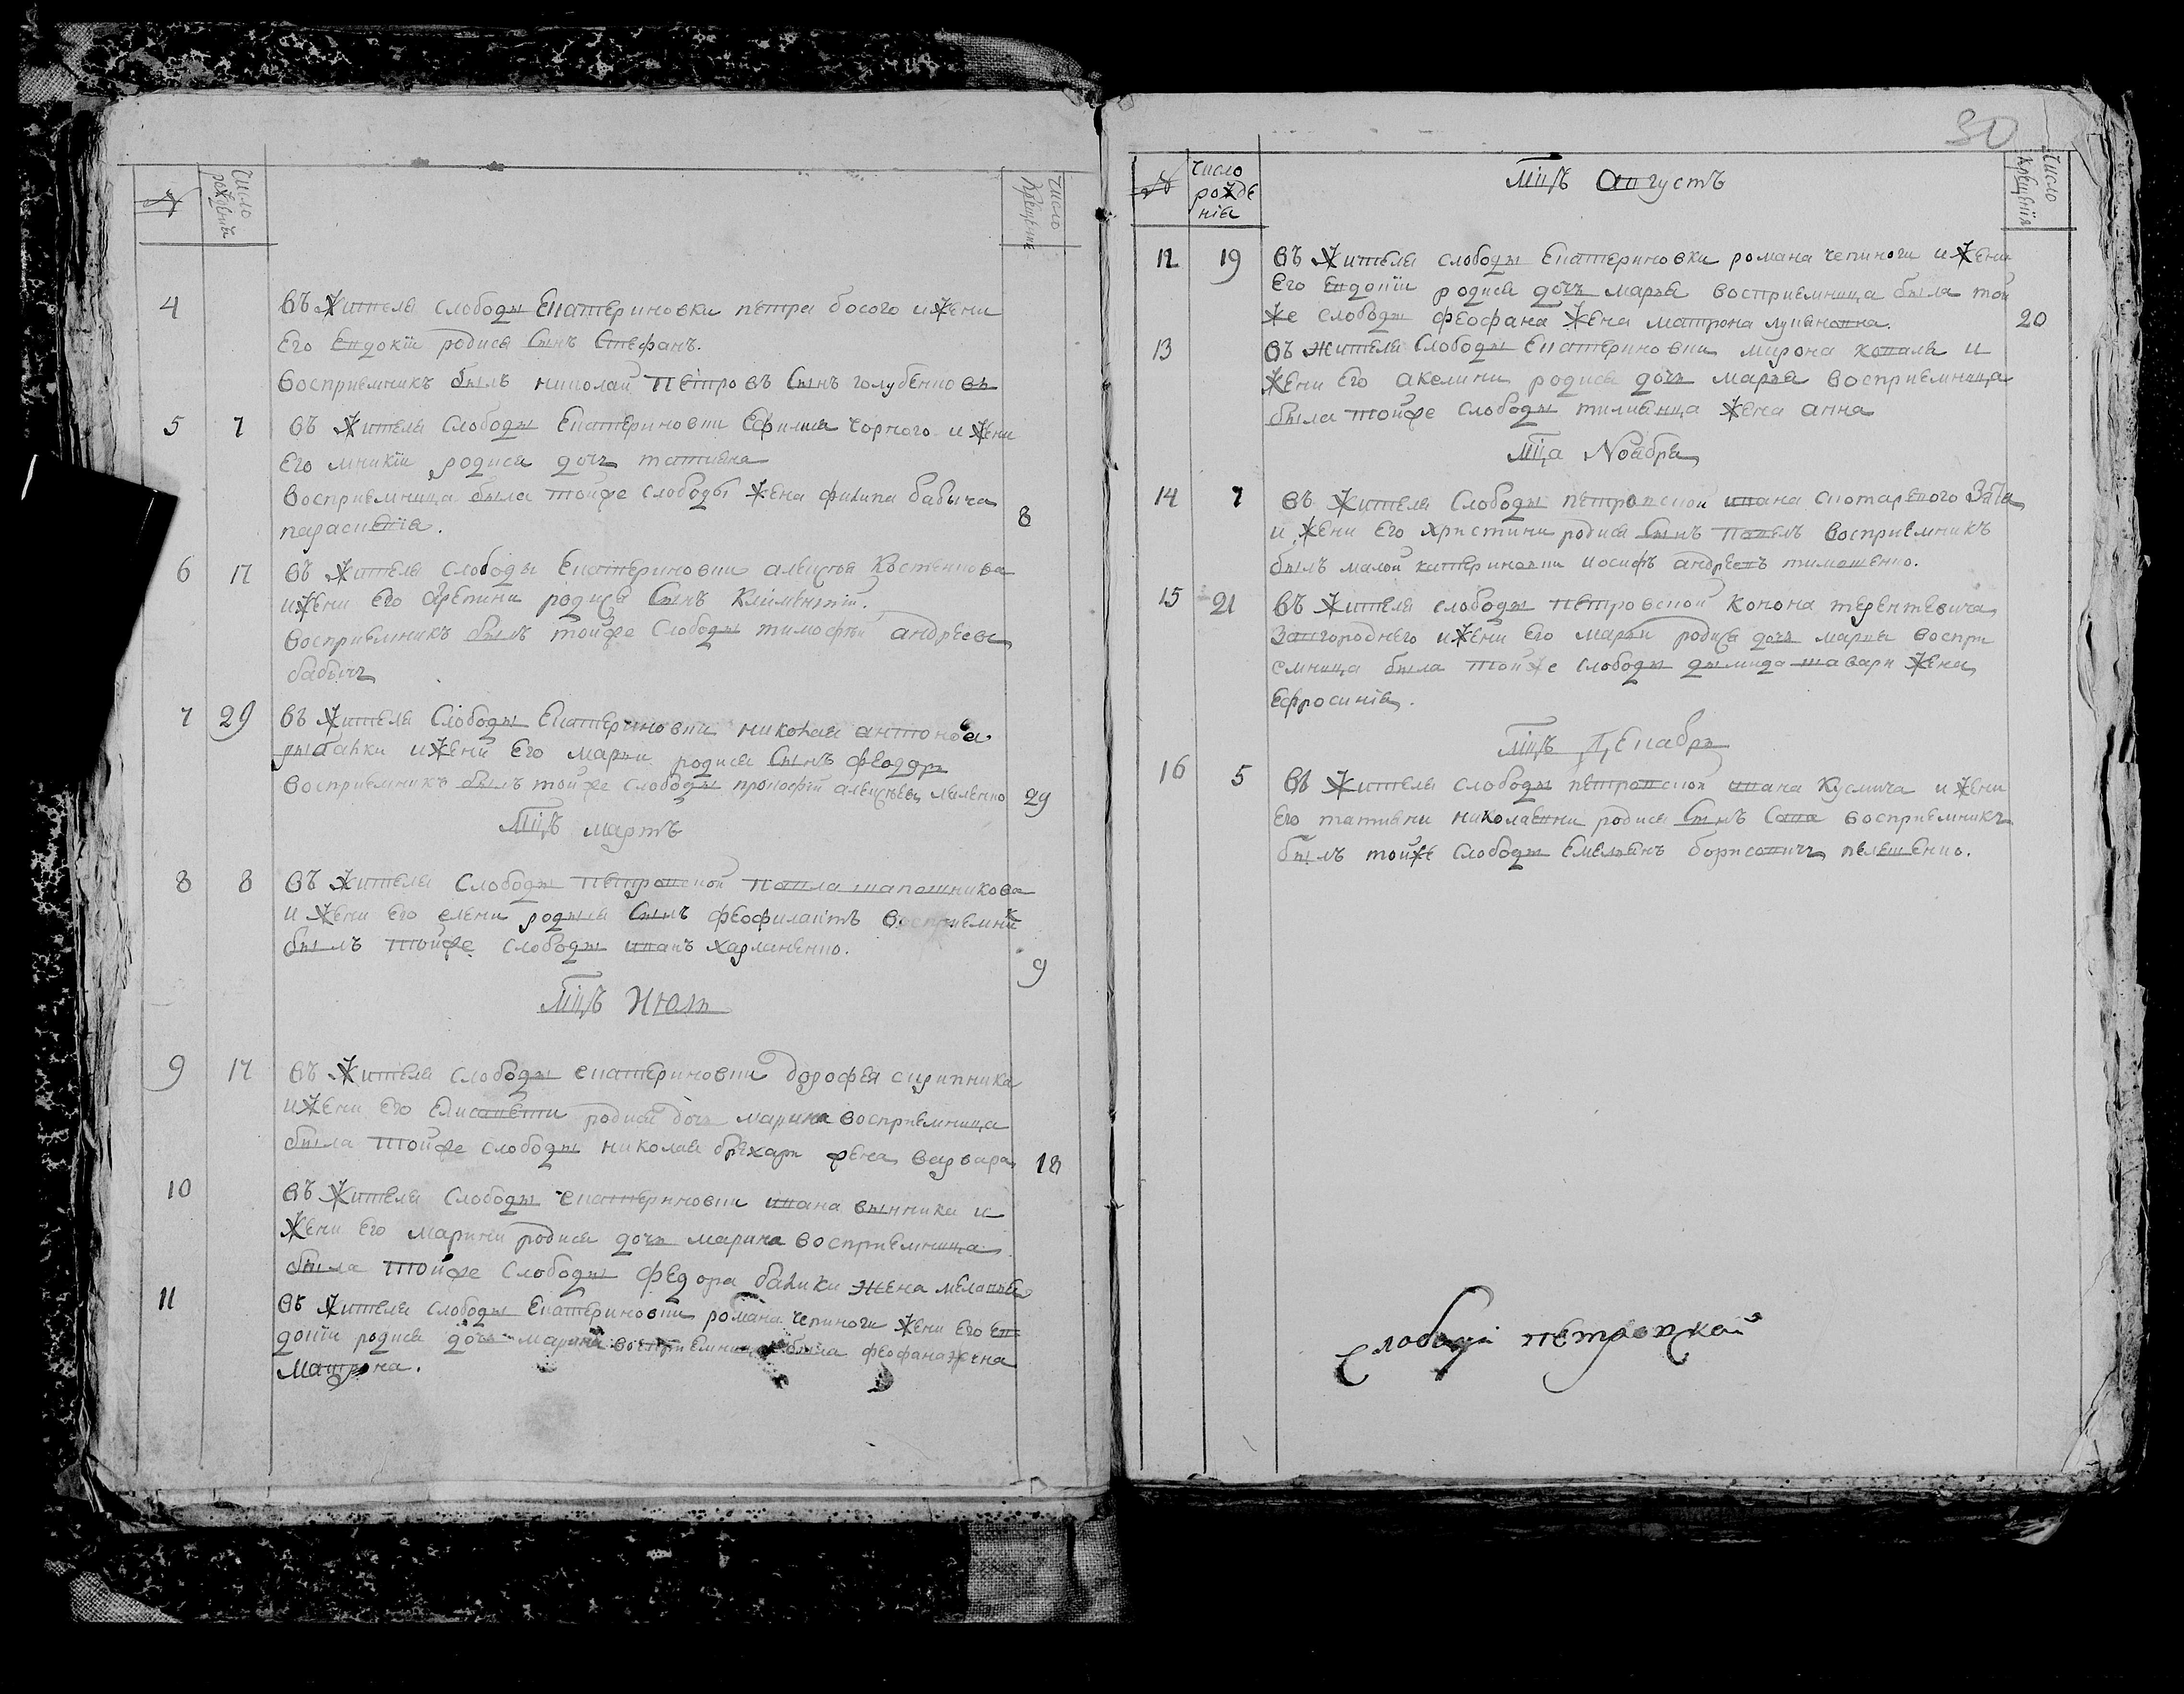 №
Число рожденiя
Число Крещенiя
4 въ Жителя слободы Екатериновки петра босого и Жени
Его Евдокiи родися Сынъ Стефанъ.
восприемникъ былъ николай Петровъ Сынъ голубенковъ
5 7 въ Жителя Слободы Екатериновки Ефима Чорного и Жени
Его родися дочь татиана
восприемница была тойже слободы Жена филипа бабыча
параскевiа. 8
6 17 въ Жителя слободы Екатериновки алексѣя
и Жени Его родися Сынъ Климентiй.
восприемникъ былъ тойже Слободы тимофѣй андреевъ
бабычъ
7 29 въ Жителя Слободы Екатериновки николая антонова
рыбалки и Жени Его марьи родися Сынъ феодоръ
восприемникъ былъ тойже слободы прокофiй алексѣевъ 29
Мцъ мартъ
8 8 въ Жителя Слободы Петровской Павла шапошникова
и Жени Его елени родися Сынъ феофилактъ восприемникъ
былъ тойже слободы иванъ харланенко. 9
Мцъ Июль
9 17 въ Жителя слободы екатериновки дорофея скрипника
и Жени Его Елисавети родися дочь марина восприемница
была тойже слободы николая бѣхаря жена варвара 18
10 въ Жителя Слободы екатериновки ивана вынника и
Жени Его марини родися дочь марина восприемница
была тойже Слободы федора балики жена меланья
11 въ Жителя слободы Екатериновки романа чепиноги Жени Его Ев
докiи родися дочь марина восприемница была феофана жена
Матрона.
30
№
Число рожденiя
Мцъ августъ
Число Крещенiя
12 19 въ Жителя слободы Екатериновки романа чепиноги и Жени
Его Евдокiи родися дочь марья восприемница была той
же слободы феофана Жена матрона лукьяновна. 20
13 въ Жителя Слободы Екатериновки мирона коваля и
Жени Его акелини родися дочь марья восприемница
была тойже слободы Жена анна
Мца Ноября
14 7 въ Жителя Слободы петровской ивана
и Жени Его христини родися Сынъ Павелъ восприемникъ
былъ малой катериновки иосифъ андреевъ тимошенко.
15 21 въ Жителя слободы Петровской Конона терентьевича
Завгороднего и Жени Его марьи родися дочь марья воспри
емница была тойже слободы Жена
Ефросинiя.
Мцъ Декабрь
16 5 въ Жителя слободы петровской ивана Кусмича и Жени
Его татияни николаевни родися Сынъ Сава восприемникъ
былъ тойже слободы Емельянъ борисовичъ пелешенко.
Слободи петровкой